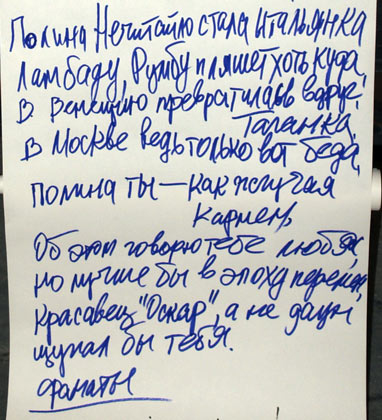 Полина Нечитайло стала итальянка
Ламбаду, Румбу пляшет хоть куда,
В Венецию превратилась вдруг
Таганка,
В Москве ведь только вот беда,
Полина ты — как жгучая
Кармен,
Об этом говорю тебе любя,
но лучше бы в эпоху перемен,
Красавец "Оскар", а не даун
щупал бы тебя.
фанаты